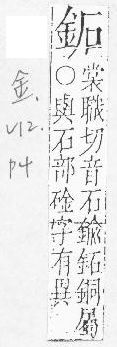 鉐
裳職切音石鍮鉐銅屬
〇與石部碒字有異
金、
V12.
P4